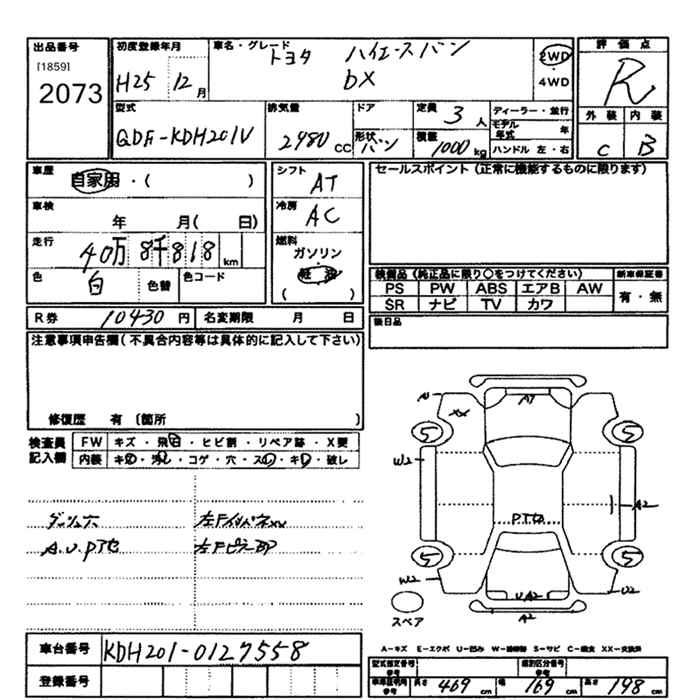 出品番号 初度登録年月 車名・グレード 評価点
[1859] トヨタ ハイエースバン 2WD R
2073 H25 12月 DX 4WD
外装 内装
型式 排気量 ドア 定員 3人 ディーラー・並行
モデル年式 年
QDF-KDH201V 2980 CC 形状 バン 積載 1000 kg ハンドル 左・右 C B
車歴 自家用・( ) シフト AT セールスポイント(正常に機能するものに限ります)
車検 年 月( 日) 冷房 AC
走行 40万8千818km 燃料 ガソリン
軽油
( )
色 白 色替 色コード
装備品(純正品に限り○をつけてください) 新車保証書
PS PW ABS エアB AW 有・無
SR ナビ TV カワ
R券 10430円 名変期限 月 日 後日品
注意事項申告欄(不具合内容等は具体的に記入して下さい)
修復歴 有 (箇所 )
検査員記入欄 FW キズ・飛石・ヒビ割・リペア跡・X要
内装 キズ・汚れ・コゲ・穴・スレ・キレ・破レ
ダッシュ穴 左FインパネXX
A.U.Pアセ 左FピラーBP
A1 A1
XX
5 5
W2
A2
Pアセ
5 5
W2 U2
U A2
A2
スペア
A−キズ E−エクボ U−凹み W−補修跡 S−サビ C−腐食 XX−交換済
車台番号 KDH201-0127558
登録番号
型式指定番号 参考 類別区分番号 参考
車庫証明用 参考 長さ 469cm 幅 169cm 高さ 198cm